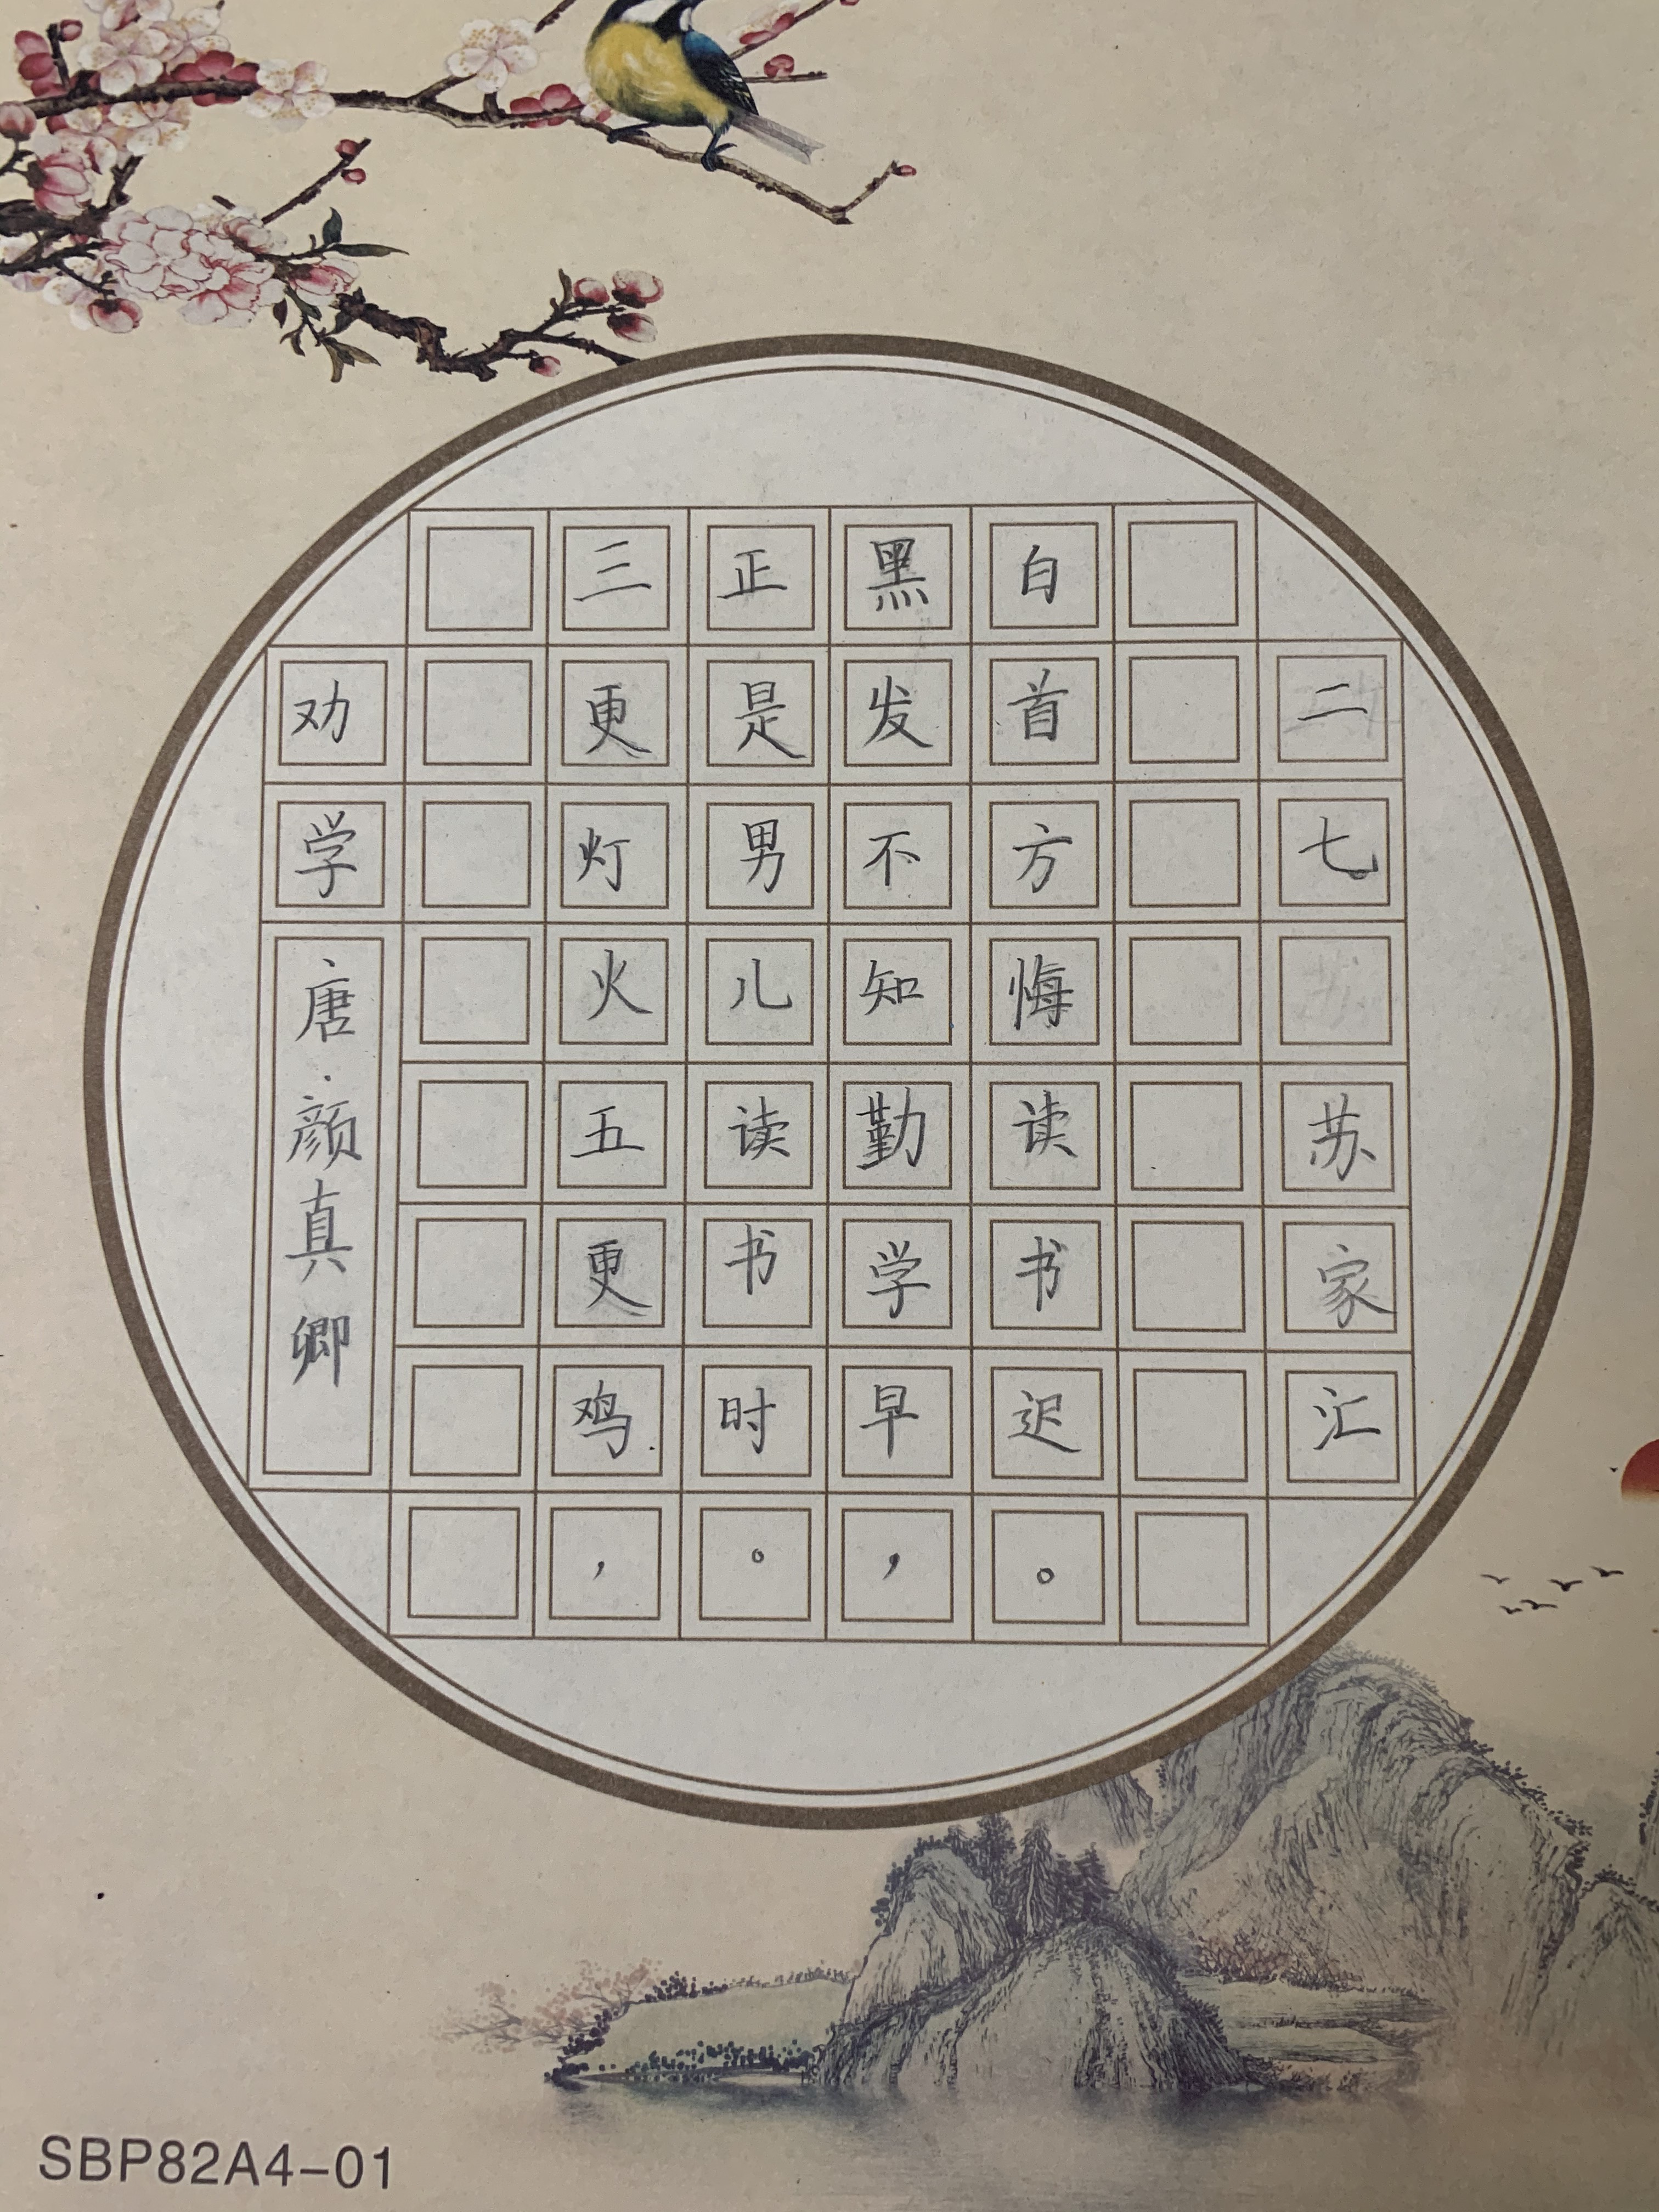 劝学
唐·颜真卿
三更灯火五更鸡，
正是男儿读书时。
黑发不知勤学早，
白首方悔读书迟。
二七 苏家汇
SBP82A4-01